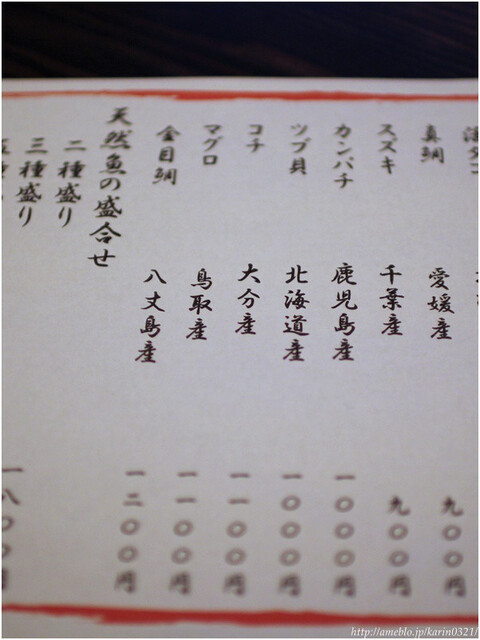 真鯛 愛媛産 九〇〇円
スズキ 千葉産 九〇〇円
カンパチ 鹿児島産 一〇〇〇円
ツブ貝 北海道産 一〇〇〇円
コチ 大分産 一一〇〇円
マグロ 鳥取産 一一〇〇円
金目鯛 八丈島産 一二〇〇円
天然魚の盛合せ
二種盛り 一八〇〇円
三種盛り
http://ameblo.jp/karin0321/